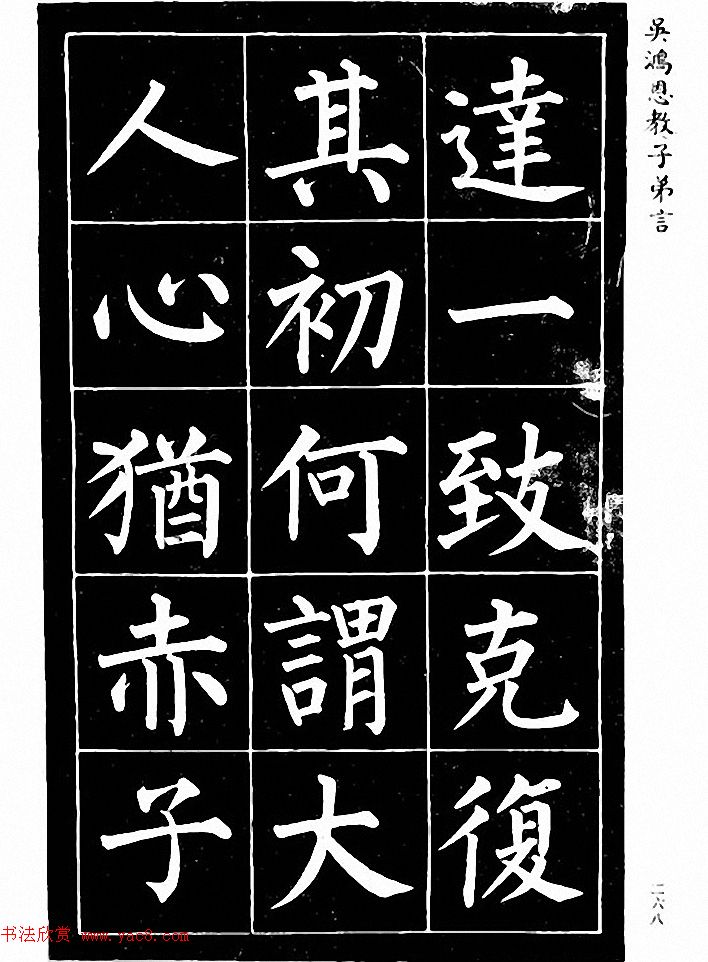 吳鴻恩教子弟言
達一致克復
其初何謂大
人心猶赤子
二六八
书法欣赏 www.yac8.com